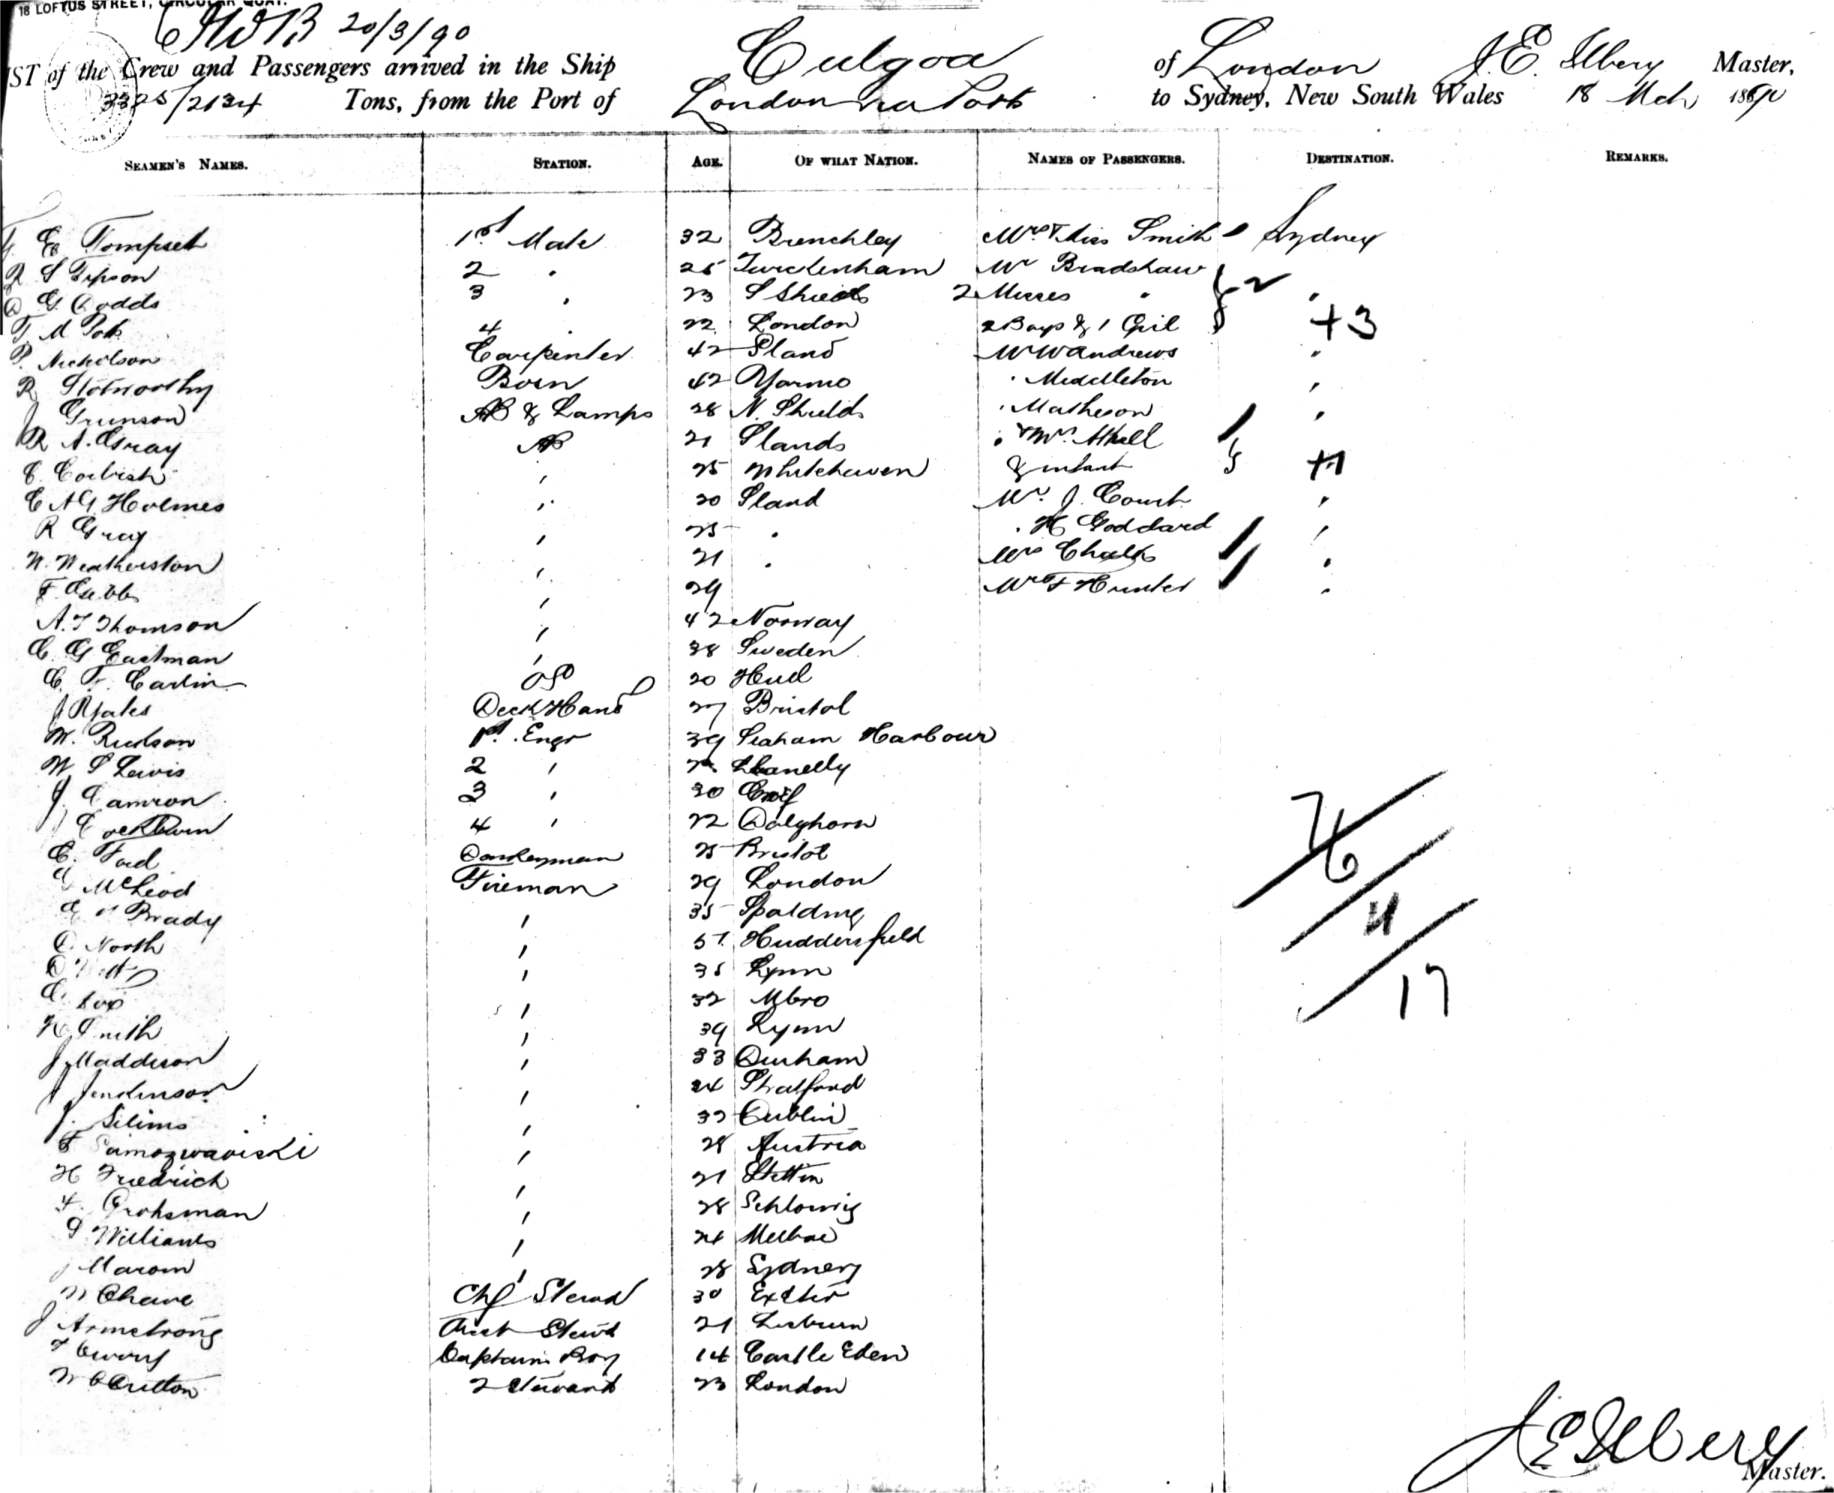 18 LOFTUS STREET, CIRCULAR QUAY.
20/3/90
LIST of the Crew and Passengers arrived in the Ship Culgoa of London J. E. Ilbery Master,
3325/2134 Tons, from the Port of London via Ports to Sydney, New South Wales 18 Mch 1890
SEAMEN'S NAMES. STATION. AGE. OF WHAT NATION. NAMES OF PASSENGERS. DESTINATION. REMARKS.
E Tompsett 1st Mate 32 Brenchley Mrs & Miss Smith Sydney
R S Gipson 2 " 25 Twickenham Mr Bradshaw 2 "
G Dodds 3 " 23 S Shields 2 Misses "
T. M 4 22 London 2 Boys & 1 Girl +3
P. Nicholson Carpenter 42 Sland Mr W Andrews "
R Stotworthy Bosn 42 Yarmo " Middleton "
J Grunson AB & Lamps 28 N. Shields " Matheson "
R A. Gray AB 21 Slands " & Mrs Athell
C. Corbish " 25 Whitehaven & infant +1
C A G Holmes " 20 Sland Mr. J. Court "
R Gray " 25 " " H Goddard "
W. Weatherston " 21 " Mrs Chalks "
F. Gubb " 29 Mrs F Hunter "
A. T Thomson " 42 Norway
C. G Eastman " 28 Sweden
C. F. Carlin OS 20 Hull
J R Yates Deck Hand 27 Bristol
W. Rudson 1st. Engr 39 Seaham Harbour
W S Lewis 2 " Llanelly
J. Camron 3 " 30
4 " 22 Dalghorn
C. Ford Donkeyman 25 Bristol
McLeod Fireman 29 London
Brady " 35 Spalding
North " 51 Huddersfield
" 35 Lynn
Cox " 32 Mbro
Smith " 39 Lynn
J Maddison " 33 Durham
J Jenkinson " 24 Stratford
J. Silims " 32 Dublin
F Samozwaviski " 28 Austria
H Friedrich " 21 Stettin
F. Grohsman " 28 Schlowig
Williams " 24 Melbne
J Marom " 28 Sydney
W Chave Chf Steward 30 Exeter
J Armstrong Asst Stewd 21 Lisburn
Captains Boy 14 Castle Eden
W C Dutton 2 Steward 23 London
76
4
17
J E Ilbery
Master.